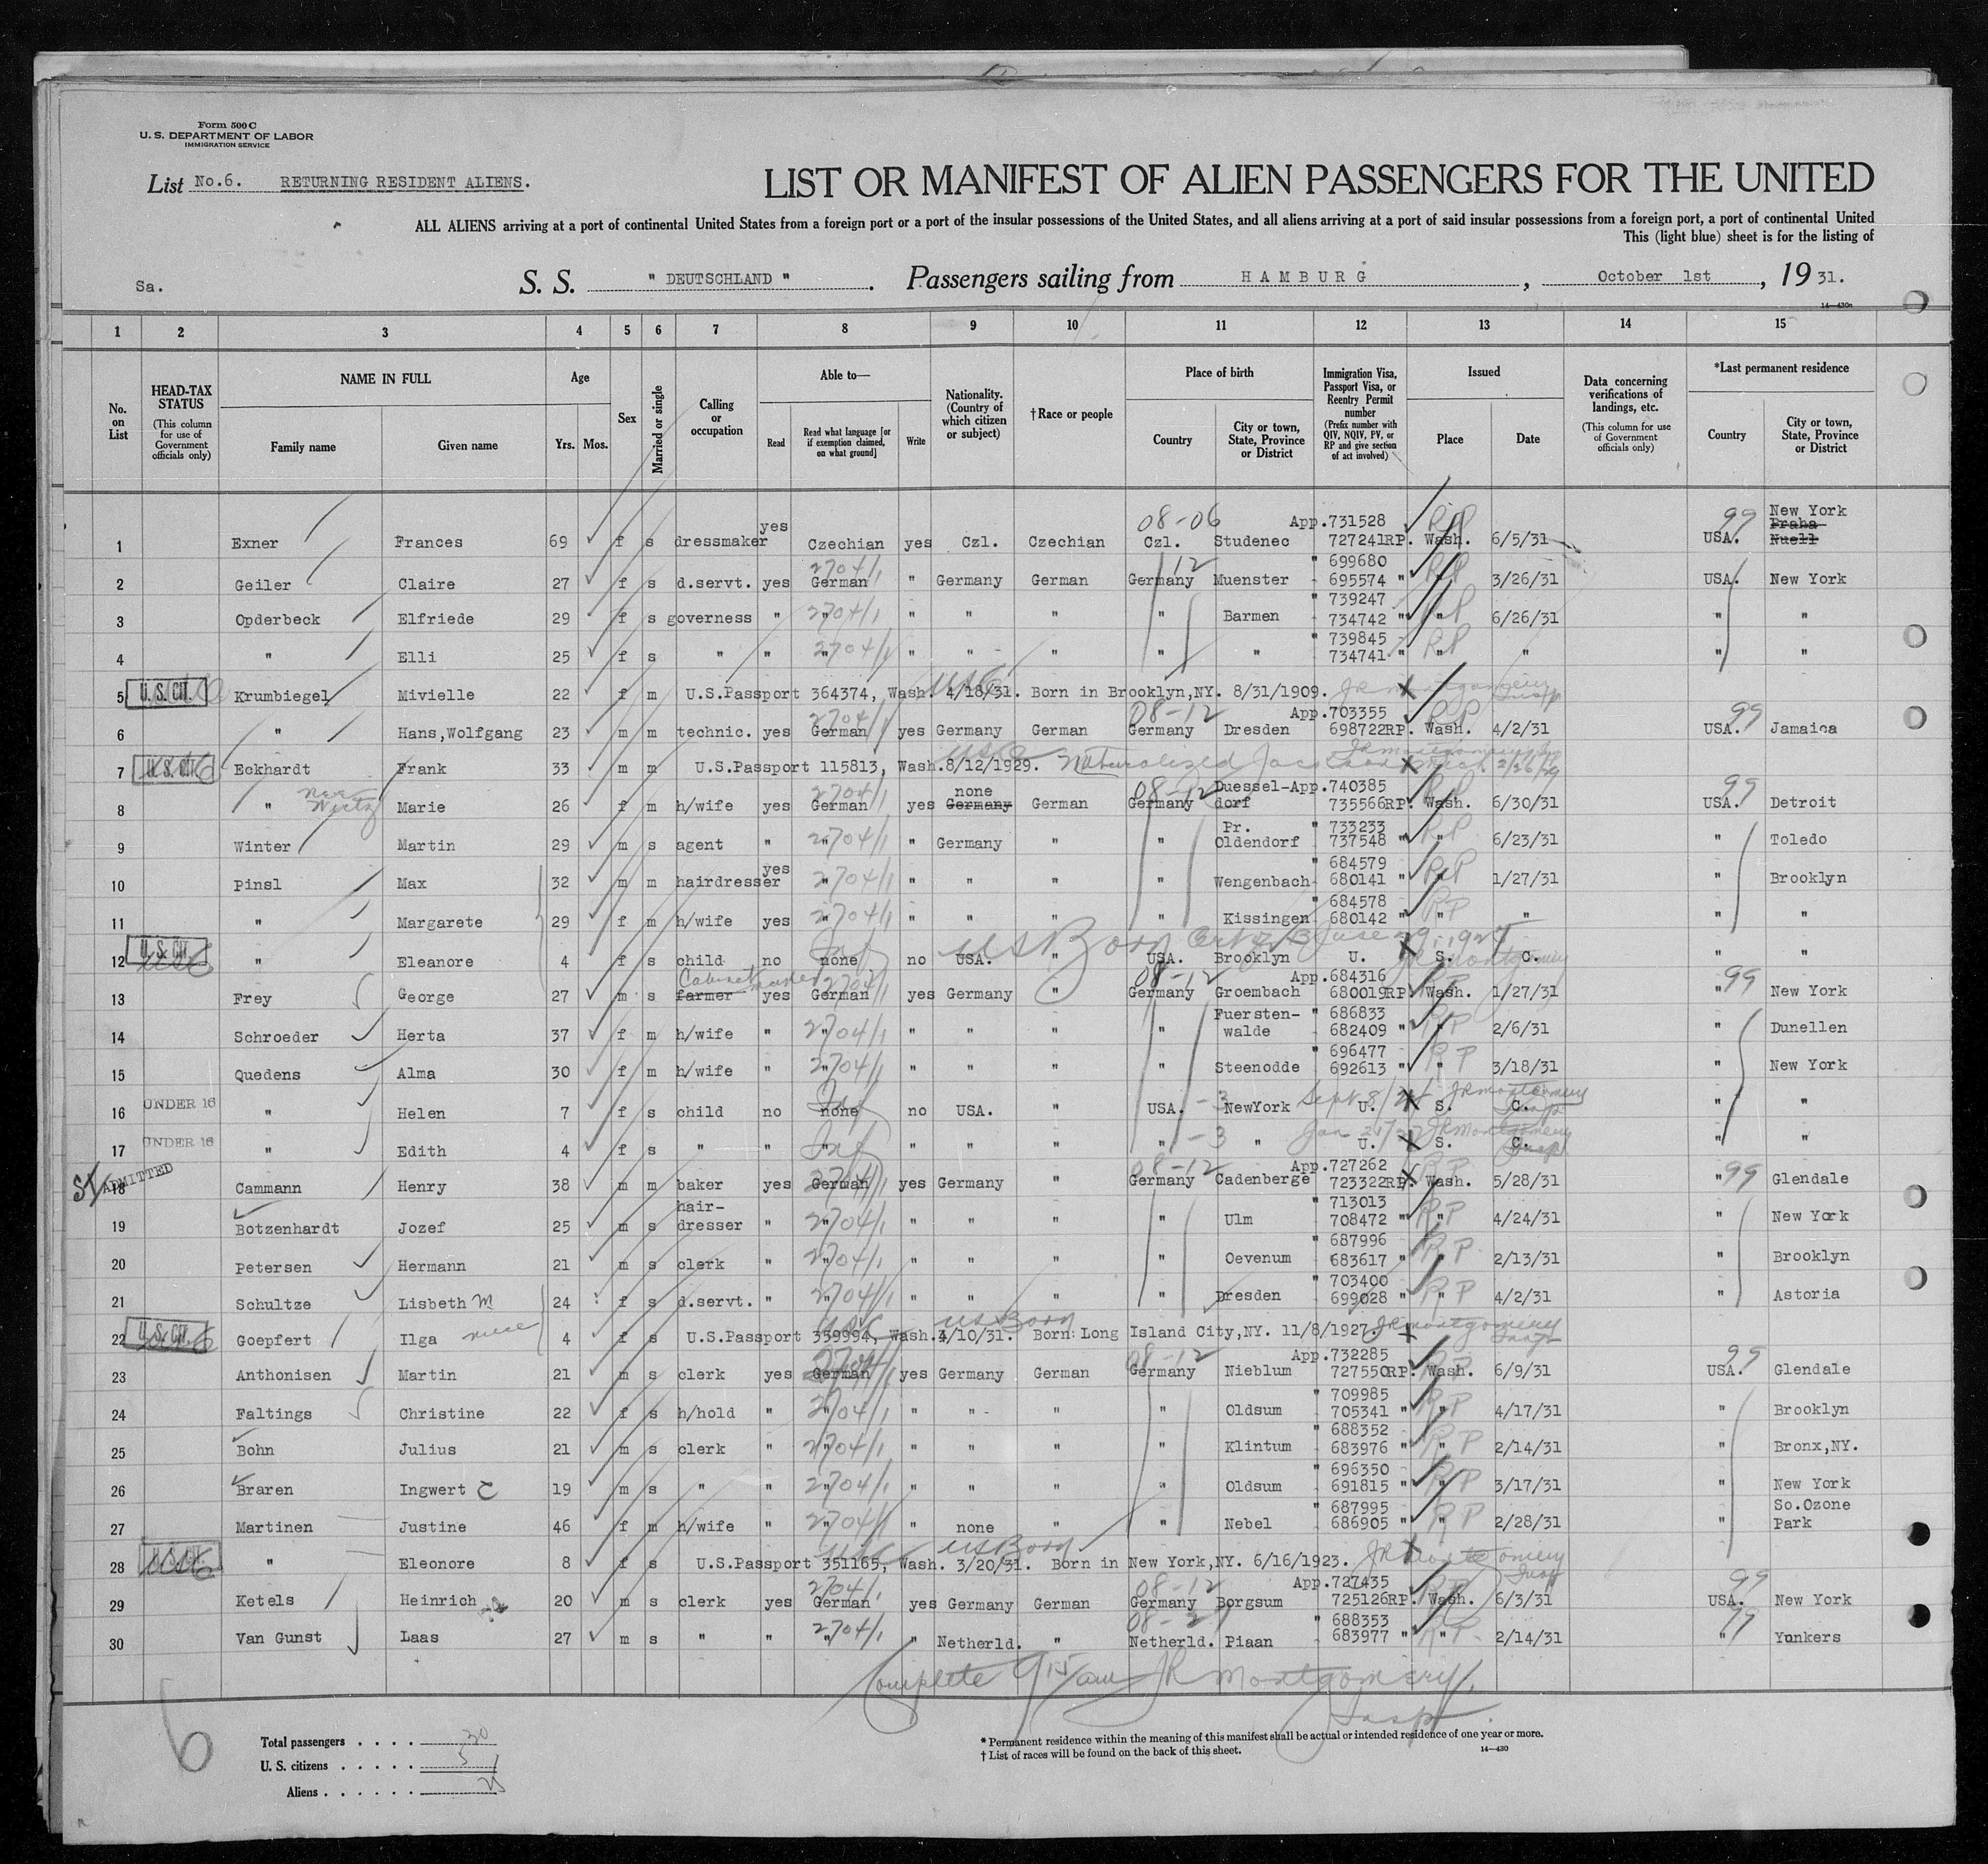 Form 500 C
U. S. DEPARTMENT OF LABOR
IMMIGRATION SERVICE
List No.6. RETURNING RESIDENT ALIENS.
LIST OR MANIFEST OF ALIEN PASSENGERS FOR THE UNITED
ALL ALIENS arriving at a port of continental United States from a foreign port or a port of the insular possessions of the United States, and all aliens arriving at a port of said insular possessions from a foreign port, a port of continental United
This (light blue) sheet is for the listing of
Sa. S. S. " DEUTSCHLAND ". Passengers sailing from HAMBURG, October 1st, 19 31.
14—430a
1 2 3 4 5 6 7 8 9 10 11 12 13 14 15
No. on List
HEAD-TAX STATUS (This column for use of Government officials only)
NAME IN FULL Family name Given name
Age Yrs. Mos.
Sex
Married or single
Calling or occupation
Able to— Read Read what language [or if exemption claimed, on what ground] Write
Nationality. (Country of which citizen or subject)
†Race or people
Place of birth Country City or town, State, Province or District
Immigration Visa, Passport Visa, or Reentry Permit number (Prefix number with QIV, NQIV, PV, or RP and give section of act involved)
Issued Place Date
Data concerning verifications of landings, etc. (This column for use of Government officials only)
*Last permanent residence Country City or town, State, Province or District
1 Exner Frances 69 f s dressmaker yes Czechian yes Czl. Czechian 08-06 Czl. Studenec App.731528 727241RP. RP Wash. 6/5/31 99 USA. New York Praha Nuell
2 Geiler Claire 27 f s d.servt. yes 2704/1 German " Germany German 12 Germany Muenster " 699680 695574 " RP " 3/26/31 USA. New York
3 Opderbeck Elfriede 29 f s governess " 2704/1 " " " " " Barmen " 739247 734742 " RP " 6/26/31 " "
4 " Elli 25 f s " " 2704/1 " " " " " " " 739845 734741 " RP " " " "
5 U. S. CIT. Krumbiegel Mivielle 22 f m U.S.Passport 364374, Wash. 4/18/31. Born in Brooklyn,NY. 8/31/1909. USC JR Montgomery Insp
6 " Hans,Wolfgang 23 m m technic. yes 2704/1 German yes Germany German 08-12 Germany Dresden App.703355 698722RP. RP Wash. 4/2/31 99 USA. Jamaica
7 U. S. CIT. Eckhardt Frank 33 m m U.S.Passport 115813, Wash.8/12/1929. USC Naturalized
8 " nee Wirtz Marie 26 f m h/wife yes 2704/1 German yes none Germany German 08-12 Germany Duessel-dorf App.740385 735566RP. RP Wash. 6/30/31 99 USA. Detroit
9 Winter Martin 29 m s agent " 2704/1 " " Germany " " Pr. Oldendorf " 733233 737548 " RP " 6/23/31 " Toledo
10 Pinsl Max 32 m m hairdresser yes 2704/1 " " " " " Wengenbach " 684579 680141 " RP " 1/27/31 " Brooklyn
11 " Margarete 29 f m h/wife yes 2704/1 " " " " " Kissingen " 684578 680142 " RP " " " "
12 U. S. CIT. " Eleanore 4 f s child no none no USA. " USA. Brooklyn U. S. C. " " US Born JR Montgomery
13 Frey George 27 m s Cabinet maker farmer yes 2704/1 German yes Germany " 08-12 Germany Groembach App.684316 680019RP. RP Wash. 1/27/31 " 99 New York
14 Schroeder Herta 37 f m h/wife " 2704/1 " " " " " Fuersten-walde " 686833 682409 " RP " 2/6/31 " Dunellen
15 Quedens Alma 30 f m h/wife " 2704/1 " " " " " Steenodde " 696477 692613 " RP " 3/18/31 " New York
16 UNDER 16 " Helen 7 f s child no none no USA. " USA. -3 NewYork U. S. C. " " JR Montgomery Insp
17 UNDER 16 " Edith 4 f s " " " " " " " -3 " U. S. C. " " JR Montgomery Insp
18 ADMITTED Cammann Henry 38 m m baker yes 2704/1 German yes Germany " 08-12 Germany Cadenberge App.727262 723322RP. RP Wash. 5/28/31 " 99 Glendale
19 Botzenhardt Jozef 25 m s hair-dresser " 2704/1 " " " " " Ulm " 713013 708472 " RP " 4/24/31 " New York
20 Petersen Hermann 21 m s clerk " 2704/1 " " " " " Oevenum " 687996 683617 " RP " 2/13/31 " Brooklyn
21 Schultze Lisbeth M 24 f s d.servt. " 2704/1 " " " " " Dresden " 703400 699028 " RP " 4/2/31 " Astoria
22 U. S. CIT. Goepfert Ilga niece 4 f s U.S.Passport 359994, Wash. 4/10/31. Born: Long Island City,NY. 11/8/1927. US Born JR Montgomery Insp
23 Anthonisen Martin 21 m s clerk yes 2704/1 German yes Germany German 08-12 Germany Nieblum App.732285 727550RP. RP Wash. 6/9/31 99 USA. Glendale
24 Faltings Christine 22 f s h/hold " 2704/1 " " " " " Oldsum " 709985 705341 " RP " 4/17/31 " Brooklyn
25 Bohn Julius 21 m s clerk " 2704/1 " " " " " Klintum " 688352 683976 " RP " 2/14/31 " Bronx,NY.
26 Braren Ingwert C 19 m s " " 2704/1 " " " " " Oldsum " 696350 691815 " RP " 3/17/31 " New York
27 Martinen Justine 46 f m h/wife " 2704/1 " " none " " Nebel " 687995 686905 " RP " 2/28/31 " So.Ozone Park
28 " Eleonore 8 f s U.S.Passport 351165, Wash. 3/20/31. Born in New York,NY. 6/16/1923. US Born JR Montgomery Insp
29 Ketels Heinrich 20 m s clerk yes 2704/1 German yes Germany German 08-12 Germany Borgsum App.727435 725126RP. RP Wash. 6/3/31 99 USA. New York
30 Van Gunst Laas 27 m s " " 2704/1 " " Netherld. " 08-21 Netherld. Piaan " 688353 683977 " RP " 2/14/31 99 " Yonkers
Complete 9 15/am JR Montgomery Insp.
6
Total passengers . . . . 30
U. S. citizens . . . . . 5
Aliens . . . . . . 25
* Permanent residence within the meaning of this manifest shall be actual or intended residence of one year or more.
† List of races will be found on the back of this sheet.
14—430